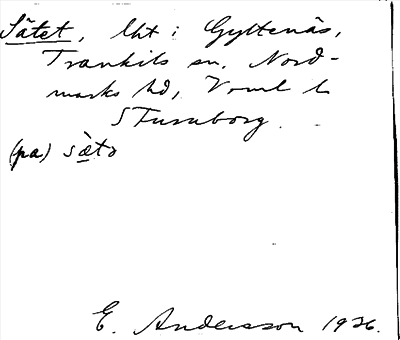 Sätet, lht i Gyltenäs,
Trankils sn. Nord-
marks hd, Vrml l.
S Furuborg.
(pa) sætə
E. Andersson 1926.